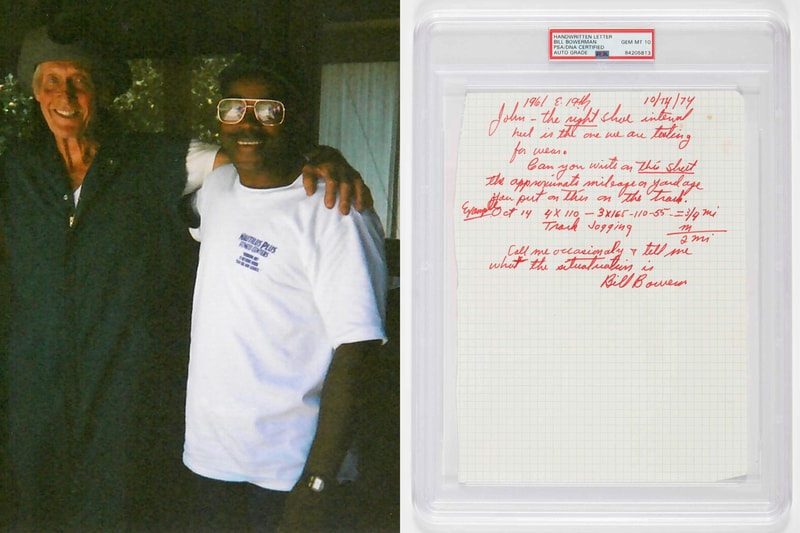 NAUTILUS PLUS
FITNESS CENTERS
HANDWRITTEN LETTER
BILL BOWERMAN
PSA/DNA CERTIFIED GEM MT 10
AUTO GRADE 84205813
1961 E. 19th 10/14/74
John – the right shoe internal
heel is the one we are testing
for wear.
Can you write on this sheet
the approximate mileage or yardage
you put on this on the track.
Example Oct 14 4 x 110 – 3x165-110-55 – = 3/4 mi
Track Jogging m
2 mi
Call me occasionaly & tell me
what the situatuation is
Bill